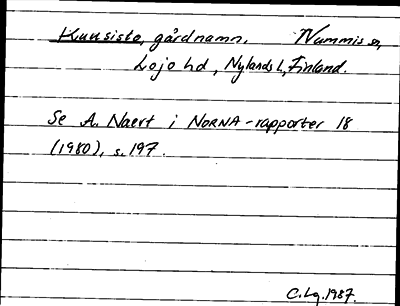 Kuusisto, gårdnamn. Nummis sn,
Lojo hd, Nylands l, Finland.
Se A. Naert i NORNA-rapporter 18
(1980), s. 197.
C. Lg. 1987.